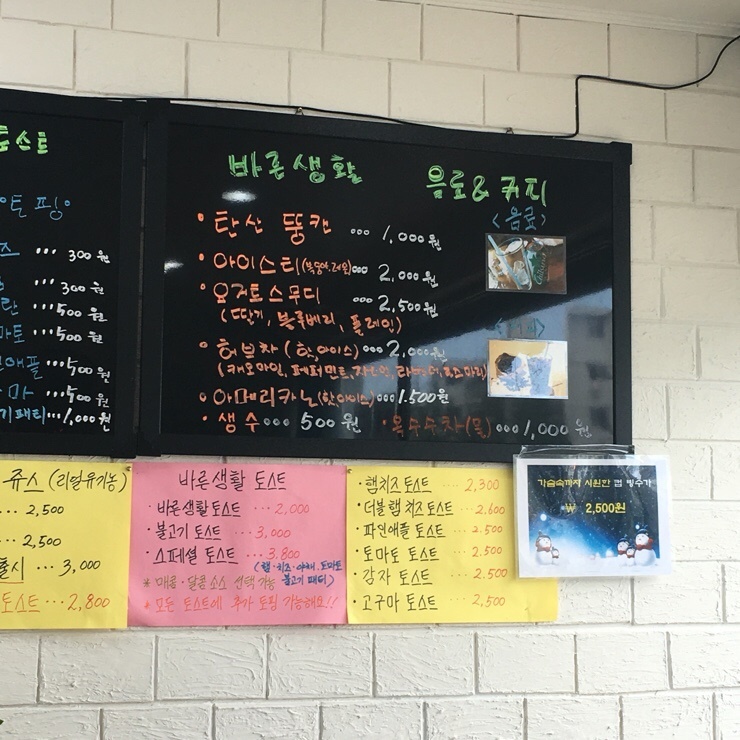 토스트
토핑
즈 ... 300원
... 300원
란 ... 500원
마토 ... 500원
애플 ... 500원
마 ... 500원
기패티 ... 1,000원
바른생활 음료 & 커피
<음료>
• 탄산 뚱캔 ... 1,000원
• 아이스티(복숭아,레몬) ... 2,000원
• 요거트스무디 ... 2,500원
(딸기, 블루베리, 플레인)
• 허브차 (핫,아이스) ... 2,000원
(캐모마일, 페퍼민트, 자스민, 라벤더, 로즈마리)
• 아메리카노(핫,아이스) ... 1,500원
• 생수 ... 500원 • 옥수수차(물) ... 1,000원
쥬스 (리얼유기농)
... 2,500
... 2,500
출시 ... 3,000
토스트 ... 2,800
바른생활 토스트
· 바른생활 토스트 ... 2,000
· 불고기 토스트 ... 3,000
· 스페셜 토스트 ... 3,800
(햄·치즈·야채·토마토
불고기 패티)
* 매콤·달콤 소스 선택가능
* 모든 토스트에 추가 토핑 가능해요!!
· 햄치즈 토스트 ... 2,300
· 더블햄치즈 토스트 ... 2,600
· 파인애플 토스트 ... 2,500
· 토마토 토스트 ... 2,500
· 감자 토스트 ... 2,500
· 고구마 토스트 ... 2,500
가슴속까지 시원한 컵 빙수가
₩ 2,500원